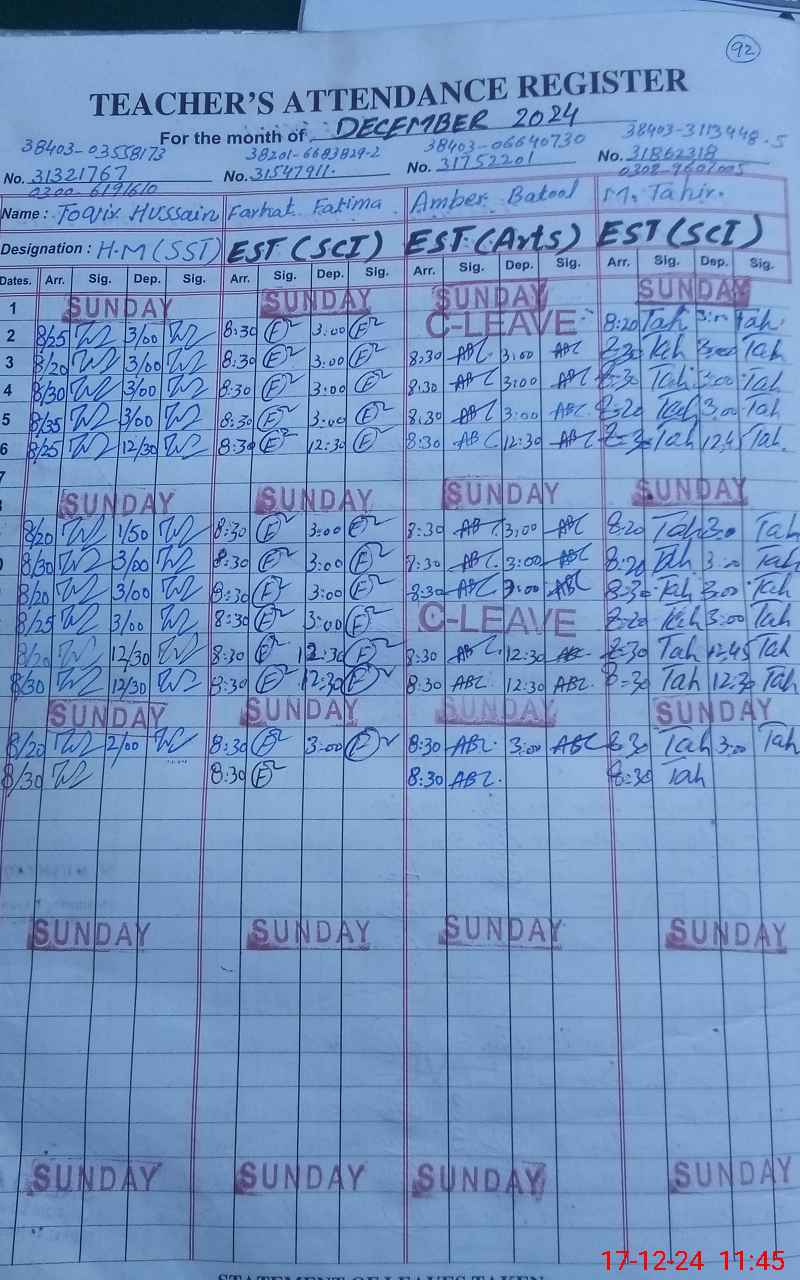 92
TEACHER'S ATTENDANCE REGISTER
For the month of DECEMBER 2024
38403-03558173 38201-6683829-2 38403-06640730 38403-3113448-5
No. 31321767 No. 31547911. No. 31752201 No. 31862318
0300-6191610
Name: Hussain Farhat Fatima Amber Batool M. Tahir.
Designation: H.M (SST) EST (SCI) EST (Arts) EST (SCI)
Dates. Arr. Sig. Dep. Sig. Arr. Sig. Dep. Sig. Arr. Sig. Dep. Sig. Arr. Sig. Dep. Sig.
1 SUNDAY SUNDAY SUNDAY SUNDAY
2 8/25 3/00 8:30 3:00 C-LEAVE 8:20 Tah 3:00 Tah
3 8/20 3/00 8:30 3:00 8:30 ABC 3:00 ABC 8:30 Tah 3:00 Tah
4 8/30 3/00 8:30 3:00 8:30 ABC 3:00 ABC 8:30 Tah 3:00 Tah
5 8/35 3/00 8:30 3:00 8:30 ABC 3:00 ABC 8:20 Tah 3:00 Tah
6 8/25 12/30 8:30 12:30 8:30 ABC 12:30 ABC 8:30 Tah Tah
7
SUNDAY SUNDAY SUNDAY SUNDAY
8/20 1/50 8:30 3:00 8:30 ABC 3:00 ABC 8:20 Tah 3:00 Tah
8/30 3/00 8:30 3:00 ABC 3:00 ABC 8:20 Tah 3:00 Tah
8/20 3/00 8:30 3:00 8:30 ABC 3:00 ABC 8:30 Tah 3:00 Tah
8/25 3/00 8:30 3:00 C-LEAVE 8:20 Tah 3:00 Tah
8/20 12/30 8:30 12:30 8:30 ABC 12:30 ABC 8:30 Tah 12:45 Tah
8/30 12/30 8:30 12:30 8:30 ABC 12:30 ABC 8:30 Tah 12:30 Tah
SUNDAY SUNDAY SUNDAY SUNDAY
8/20 2/00 8:30 3:00 8:30 ABC 3:00 ABC 8:30 Tah 3:00 Tah
8/30 8:30 8:30 ABC 8:30 Tah
SUNDAY SUNDAY SUNDAY SUNDAY
SUNDAY SUNDAY SUNDAY SUNDAY
17-12-24 11:45
STATEMENT OF LEAVES TAKEN